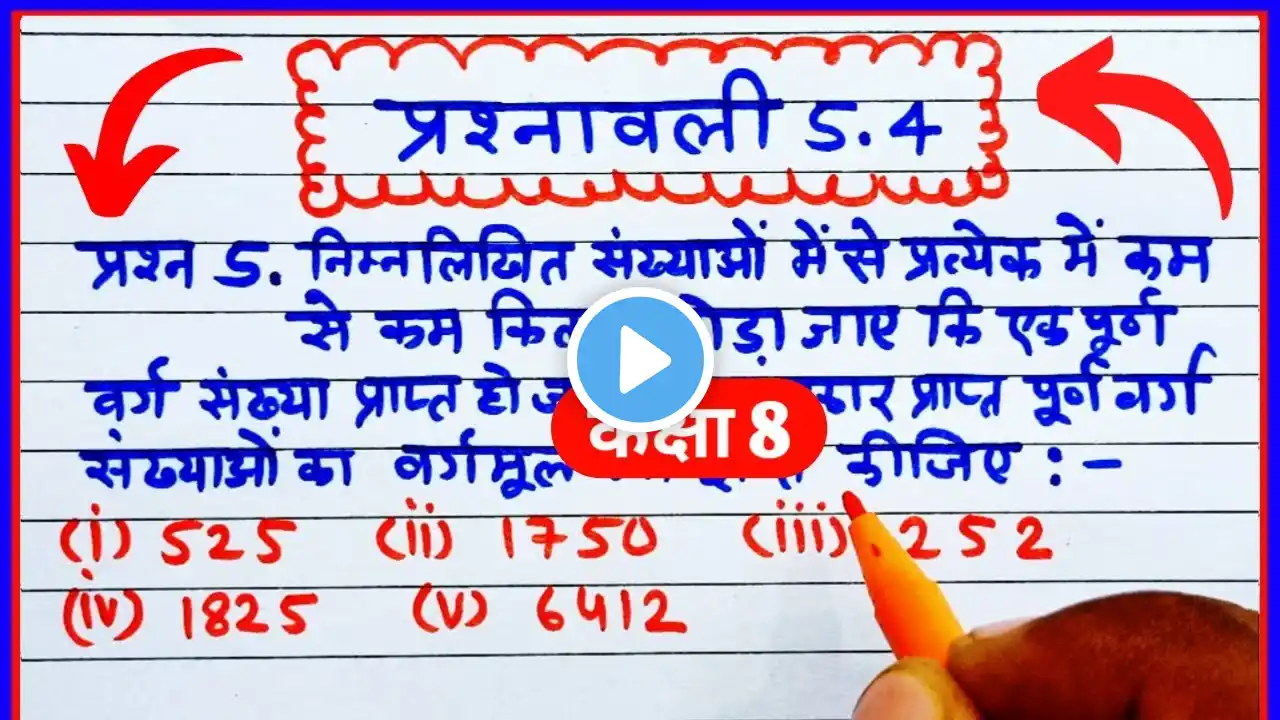 प्रश्नावली 5.4
प्रश्न 5. निम्नलिखित संख्याओं में से प्रत्येक में कम
से कम जाए कि एक पूर्ण
वर्ग संख्या प्राप्त हो प्राप्त पूर्ण वर्ग
कक्षा 8
संख्याओं का वर्गमूल कीजिए :-
(i) 525 (ii) 1750 (iii) 252
(iv) 1825 (v) 6412